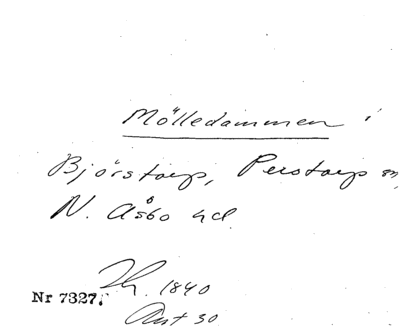 Mölledammen i
Björstorp, Perstorp sn,
N. Åsbo hd.
1840
Nr 7327.
30